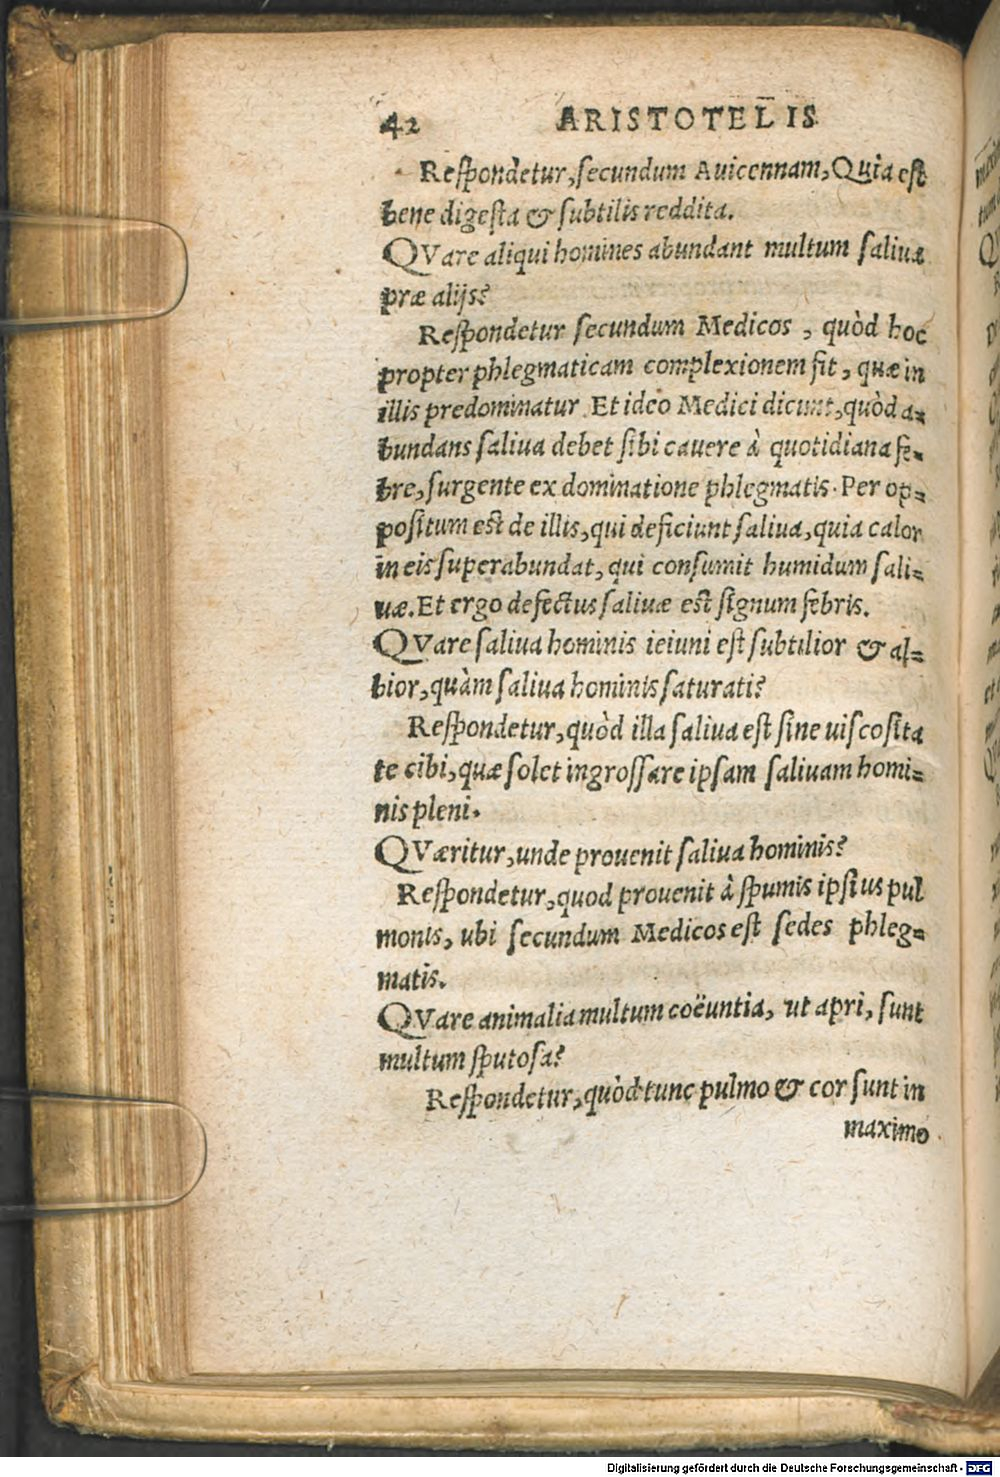 42 ARISTOTELIS
Respondetur, secundum Auicennam, Quia est
bene digesta & subtilis reddita.
QVare aliqui homines abundant multum saliuæ
præ alijs?
Respondetur secundum Medicos, quòd hoc
propter phlegmaticam complexionem fit, quæ in
illis predominatur. Et ideo Medici dicunt, quòd a=
bundans saliua debet sibi cauere à quotidiana fe=
bre, surgente ex dominatione phlegmatis. Per op=
positum est de illis, qui deficiunt saliua, quia calor
in eis superabundat, qui consumit humidum sali=
uæ. Et ergo defectus saliuæ est signum febris.
QVare saliua hominis ieiuni est subtilior & al=
bior, quàm saliua hominis saturati?
Respondetur, quòd illa saliua est sine uiscosita
te cibi, quæ solet ingrossare ipsam saliuam homi=
nis pleni.
QVæritur, unde prouenit saliua hominis?
Respondetur, quod prouenit à spumis ipsius pul
monis, ubi secundum Medicos est sedes phleg=
matis.
QVare animalia multum coëuntia, ut apri, sunt
multum sputosa?
Respondetur, quòd tunc pulmo & cor sunt in
maximo
Digitalisierung gefördert durch die Deutsche Forschungsgemeinschaft - DFG